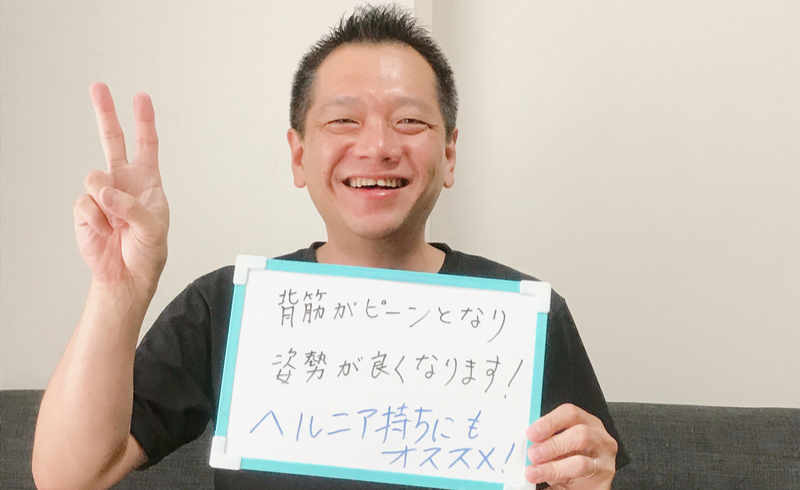 背筋がピーンとなり
姿勢が良くなります!
ヘルニア持ちにも
オススメ!